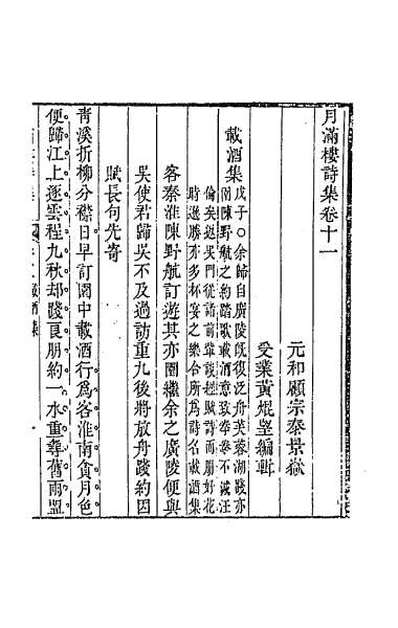 月滿樓詩集卷十一
元和顧宗泰景嶽
受業黃焜望編輯
載酒集
戊子○余歸自廣陵旣復泛舟芙蓉湖踐亦
園陳野航之約踏歌載酒意致拳拳不減汪
倫矣返吳門從諸前輩談經賦詩而朋好花
時遊勝亦多杯宴之樂合所爲詩名載酒集
客秦淮陳野航訂遊其亦園繼余之廣陵便與
吳使君歸吳不及過訪重九後將放舟踐約因
賦長句先寄
靑溪折柳分襟日早訂園中載酒行爲客淮南貪月色
便歸江上逐雲程九秋却踐良朋約一水重尋舊雨盟